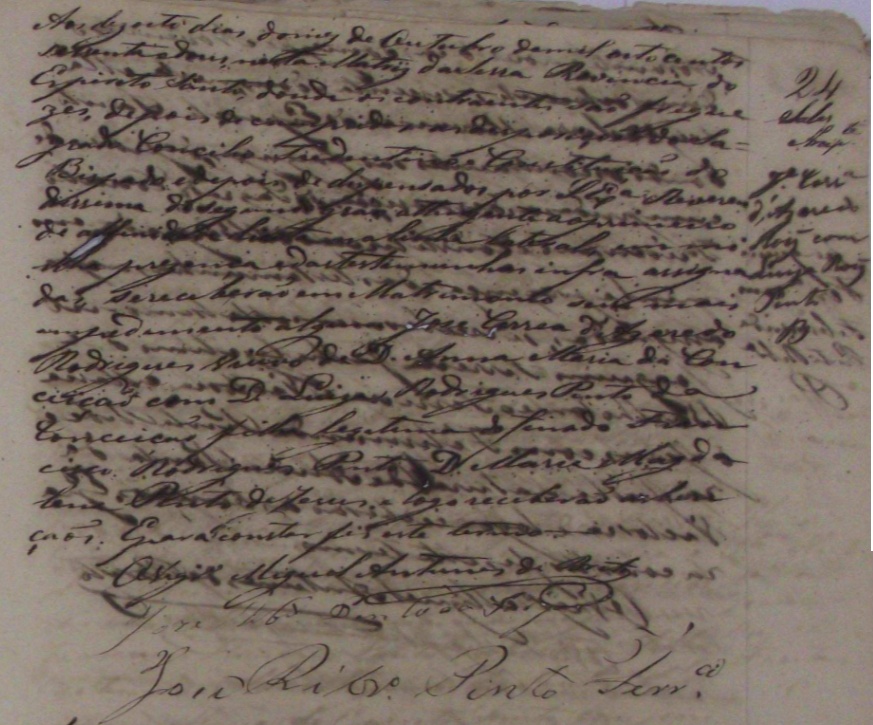 Aos dezoito dias do mez de Outubro de mil oito centos
setenta e dous, nesta Matriz da Serra Provincia do
Espirito Santo, donde os contrahentes são fregue
zes, depois de cumpridas as disposições do Sa=
grado Concilio Tridentino e Constituições do
Bispado e depois de dispensados por S. Ex.ª Reveren
dissima do segundo grau attinente ao primeiro
de affinidade licita na linha lateral
na presença das testemunhas infra assigna
das se receberão em Matrimonio sem mais
impedimento algum José Correa d'Azeredo
Rodrigues viuvo de D. Anna Maria da Con
ceição com D. Luiza Rodrigues Pinto da
Conceição filha legitima do finado Fran
cisco Rodrigues Pinto e D. Maria Magda
lena Pinto de Jesus, e logo receberão as ben
çaõs. E para constar fiz este termo
O Vigr.º Miguel Antunes de
José Ribr.º Pinto Ferr.ª
24
J.e Corr.ª
d'Azeredo
Roiz com
Luiza Roiz
Pinto
B